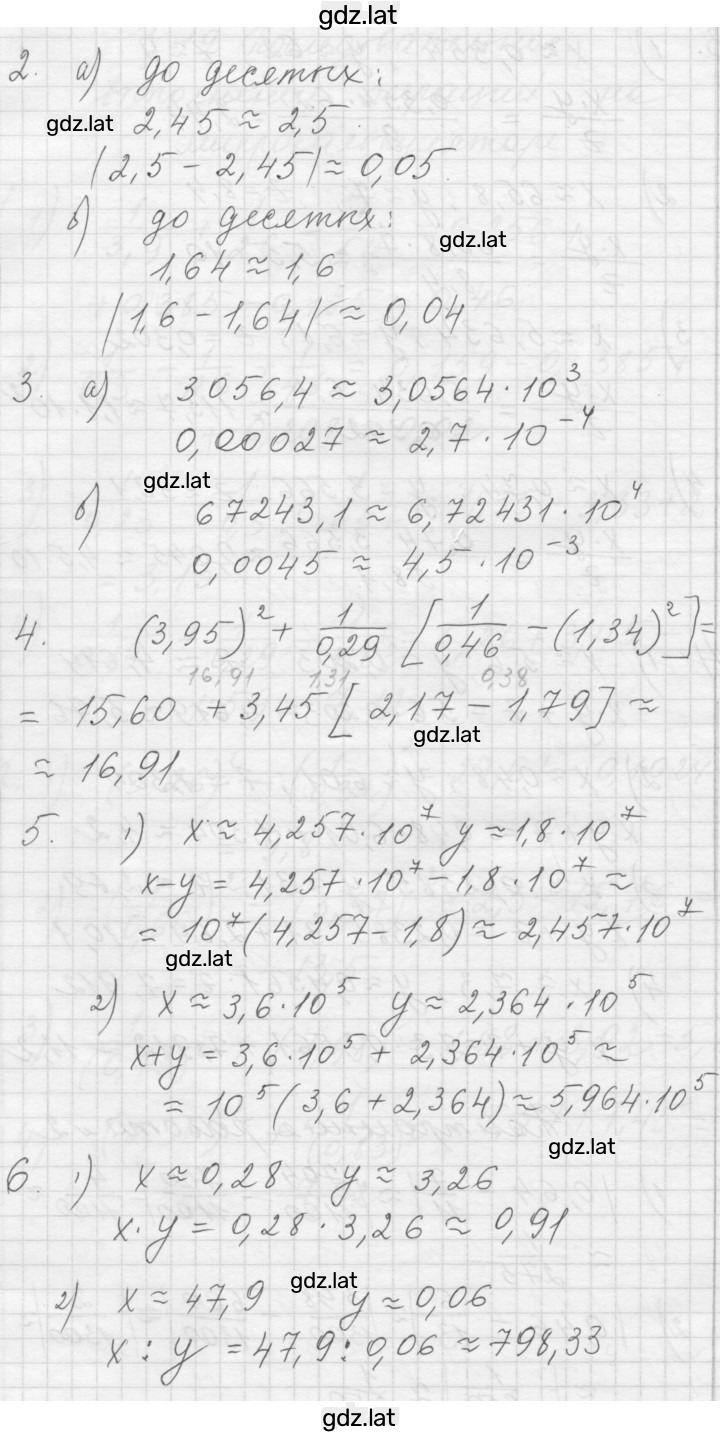 gdz.lat
2. а) до десятых:
gdz.lat 2,45 ≈ 2,5
|2,5 - 2,45| ≈ 0,05
б) до десятых:
gdz.lat
1,64 ≈ 1,6
|1,6 - 1,64| ≈ 0,04
3. а) 3056,4 ≈ 3,0564·10³
0,00027 ≈ 2,7·10⁻⁴
gdz.lat
б) 67243,1 ≈ 6,72431·10⁴
0,0045 ≈ 4,5·10⁻³
4. (3,95)² + 1/0,29 [1/0,46 - (1,34)²] =
16,91 1,31 0,38
= 15,60 + 3,45 [2,17 - 1,79] ≈
gdz.lat
≈ 16,91
5. 1) x ≈ 4,257·10⁷ y ≈ 1,8·10⁷
x-y = 4,257·10⁷ - 1,8·10⁷ ≈
= 10⁷(4,257 - 1,8) ≈ 2,457·10⁷
gdz.lat
2) x ≈ 3,6·10⁵ y ≈ 2,364·10⁵
x+y = 3,6·10⁵ + 2,364·10⁵ ≈
= 10⁵(3,6 + 2,364) ≈ 5,964·10⁵
gdz.lat
6. 1) x ≈ 0,28 y ≈ 3,26
x·y = 0,28·3,26 ≈ 0,91
gdz.lat
2) x ≈ 47,9 y ≈ 0,06
x : y = 47,9 : 0,06 ≈ 798,33
gdz.lat